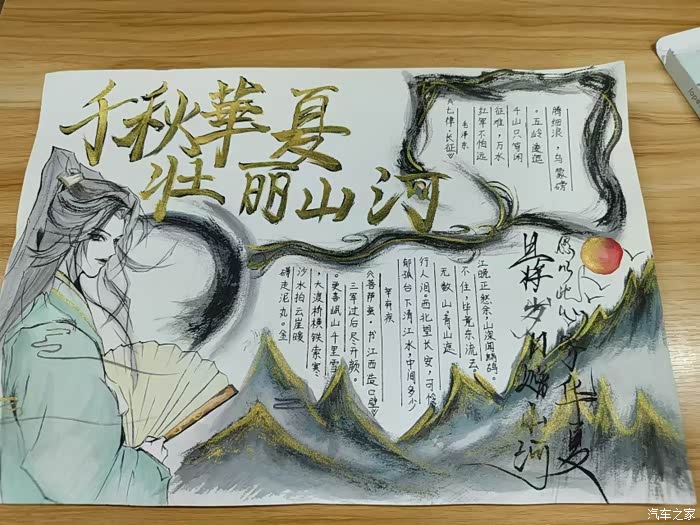 千秋華夏
壮丽山河
《七律·长征》
毛泽东
红军不怕远
征难，万水
千山只等闲
。五岭逶迤
腾细浪，乌蒙磅
礴走泥丸。金
沙水拍云崖暖
，大渡桥横铁索寒
。更喜岷山千里雪
三军过后尽开颜。
《菩萨蛮·书江西造口壁》
辛弃疾
郁孤台下清江水，中间多少
行人泪。西北望长安，可怜
无数山。青山遮
不住，毕竟东流去。
江晚正愁余，山深闻鹧鸪。
愿以此心守华夏
且将岁月赠山河
汽车之家